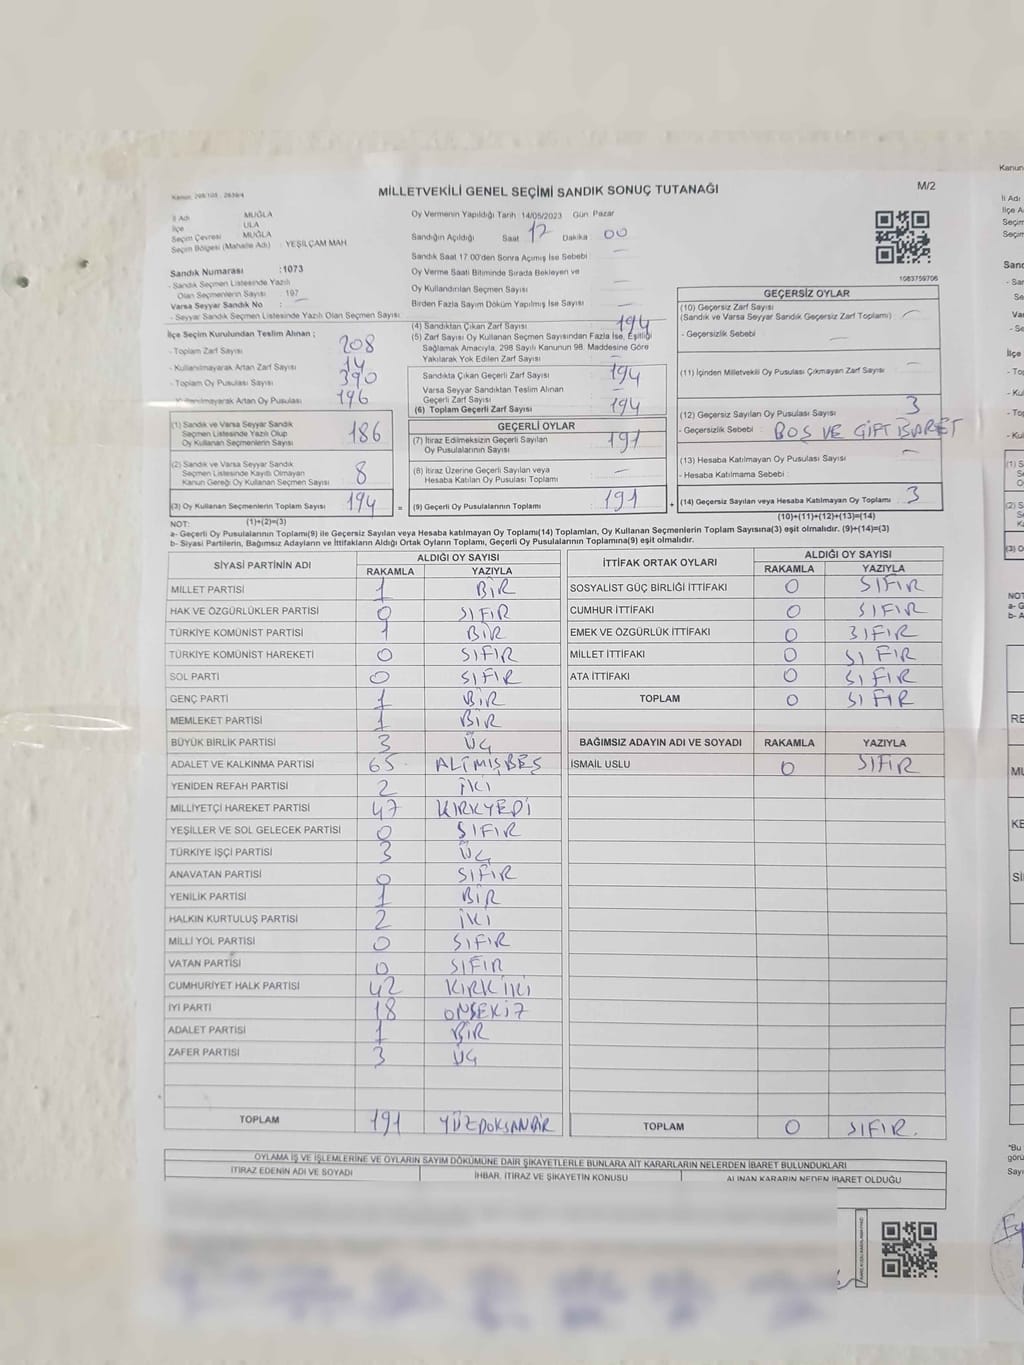 MİLLETVEKİLİ GENEL SEÇİMİ SANDIK SONUÇ TUTANAĞI
M/2
İl Adı MUĞLA
İlçe ULA
Seçim Çevresi MUĞLA
Seçim Bölgesi (Mahalle Adı) : YEŞİLÇAM MAH
Sandık Numarası :1073
- Sandık Seçmen Listesinde Yazılı
Olan Seçmenlerin Sayısı : 197
Varsa Seyyar Sandık No :
- Seyyar Sandık Seçmen Listesinde Yazılı Olan Seçmen Sayısı
Oy Vermenin Yapıldığı Tarih :14/05/2023 Gün Pazar
Sandığın Açıldığı Saat 17 Dakika 00
Sandık Saat 17.00'den Sonra Açımış İse Sebebi
Oy Verme Saati Bitiminde Sırada Bekleyen ve
Oy Kullandırılan Seçmen Sayısı
Birden Fazla Sayım Döküm Yapılmış İse Sayısı
1083759706
İlçe Seçim Kurulundan Teslim Alınan ;
- Toplam Zarf Sayısı 208
- Kullanılmayarak Artan Zarf Sayısı 14
- Toplam Oy Pusulası Sayısı 390
Kullanılmayarak Artan Oy Pusulası 196
(1) Sandık ve Varsa Seyyar Sandık
Seçmen Listesinde Yazılı Olup
Oy Kullanan Seçmenlerin Sayısı 186
(2) Sandık ve Varsa Seyyar Sandık
Seçmen Listesinde Kayıtlı Olmayan
Kanun Gereği Oy Kullanan Seçmen Sayısı 8
(3) Oy Kullanan Seçmenlerin Toplam Sayısı 194 =
(4) Sandıktan Çıkan Zarf Sayısı 194
(5) Zarf Sayısı Oy Kullanan Seçmen Sayısından Fazla İse, Eşitliği
Sağlamak Amacıyla, 298 Sayılı Kanunun 98. Maddesine Göre
Yakılarak Yok Edilen Zarf Sayısı
Sandıkta Çıkan Geçerli Zarf Sayısı 194
Varsa Seyyar Sandıktan Teslim Alınan
Geçerli Zarf Sayısı
(6) Toplam Geçerli Zarf Sayısı 194
GEÇERLİ OYLAR
(7) İtiraz Edilmeksizin Geçerli Sayılan
Oy Pusulalarının Sayısı 191
(8) İtiraz Üzerine Geçerli Sayılan veya
Hesaba Katılan Oy Pusulası Toplamı
(9) Geçerli Oy Pusulalarının Toplamı 191 +
GEÇERSİZ OYLAR
(10) Geçersiz Zarf Sayısı
(Sandık ve Varsa Seyyar Sandık Geçersiz Zarf Toplamı)
- Geçersizlik Sebebi :
(11) İçinden Milletvekili Oy Pusulası Çıkmayan Zarf Sayısı
(12) Geçersiz Sayılan Oy Pusulası Sayısı 3
- Geçersizlik Sebebi : BOŞ VE ÇİFT İŞARET
(13) Hesaba Katılmayan Oy Pusulası Sayısı
- Hesaba Katılmama Sebebi :
(14) Geçersiz Sayılan veya Hesaba Katılmayan Oy Toplamı 3
NOT: (1)+(2)=(3) (10)+(11)+(12)+(13)=(14)
a- Geçerli Oy Pusulalarının Toplamı(9) ile Geçersiz Sayılan veya Hesaba katılmayan Oy Toplamı(14) Toplamları, Oy Kullanan Seçmenlerin Toplam Sayısına(3) eşit olmalıdır. (9)+(14)=(3)
b- Siyasi Partilerin, Bağımsız Adayların ve İttifakların Aldığı Ortak Oyların Toplamı, Geçerli Oy Pusulalarının Toplamına(9) eşit olmalıdır.
SİYASİ PARTİNİN ADI ALDIĞI OY SAYISI
RAKAMLA YAZIYLA
MİLLET PARTİSİ 1 BİR
HAK VE ÖZGÜRLÜKLER PARTİSİ 0 SIFIR
TÜRKİYE KOMÜNİST PARTİSİ 1 BİR
TÜRKİYE KOMÜNİST HAREKETİ 0 SIFIR
SOL PARTİ 0 SIFIR
GENÇ PARTİ 1 BİR
MEMLEKET PARTİSİ 1 BİR
BÜYÜK BİRLİK PARTİSİ 3 ÜÇ
ADALET VE KALKINMA PARTİSİ 65 ALTMIŞBEŞ
YENİDEN REFAH PARTİSİ 2 İKİ
MİLLİYETÇİ HAREKET PARTİSİ 47 KIRKYEDİ
YEŞİLLER VE SOL GELECEK PARTİSİ 0 SIFIR
TÜRKİYE İŞÇİ PARTİSİ 3 ÜÇ
ANAVATAN PARTİSİ 0 SIFIR
YENİLİK PARTİSİ 1 BİR
HALKIN KURTULUŞ PARTİSİ 2 İKİ
MİLLİ YOL PARTİSİ 0 SIFIR
VATAN PARTİSİ 0 SIFIR
CUMHURİYET HALK PARTİSİ 42 KIRKİKİ
İYİ PARTİ 18 ONSEKİZ
ADALET PARTİSİ 1 BİR
ZAFER PARTİSİ 3 ÜÇ
TOPLAM 191 YÜZDOKSANBİR
İTTİFAK ORTAK OYLARI ALDIĞI OY SAYISI
RAKAMLA YAZIYLA
SOSYALİST GÜÇ BİRLİĞİ İTTİFAKI 0 SIFIR
CUMHUR İTTİFAKI 0 SIFIR
EMEK VE ÖZGÜRLÜK İTTİFAKI 0 SIFIR
MİLLET İTTİFAKI 0 SIFIR
ATA İTTİFAKI 0 SIFIR
TOPLAM 0 SIFIR
BAĞIMSIZ ADAYIN ADI VE SOYADI RAKAMLA YAZIYLA
İSMAİL USLU 0 SIFIR
TOPLAM 0 SIFIR.
OYLAMA İŞ VE İŞLEMLERİNE VE OYLARIN SAYIM DÖKÜMÜNE DAİR ŞİKAYETLERLE BUNLARA AİT KARARLARIN NELERDEN İBARET BULUNDUKLARI
İTİRAZ EDENİN ADI VE SOYADI İHBAR, İTİRAZ VE ŞİKAYETİN KONUSU ALINAN KARARIN NEDEN İBARET OLDUĞU